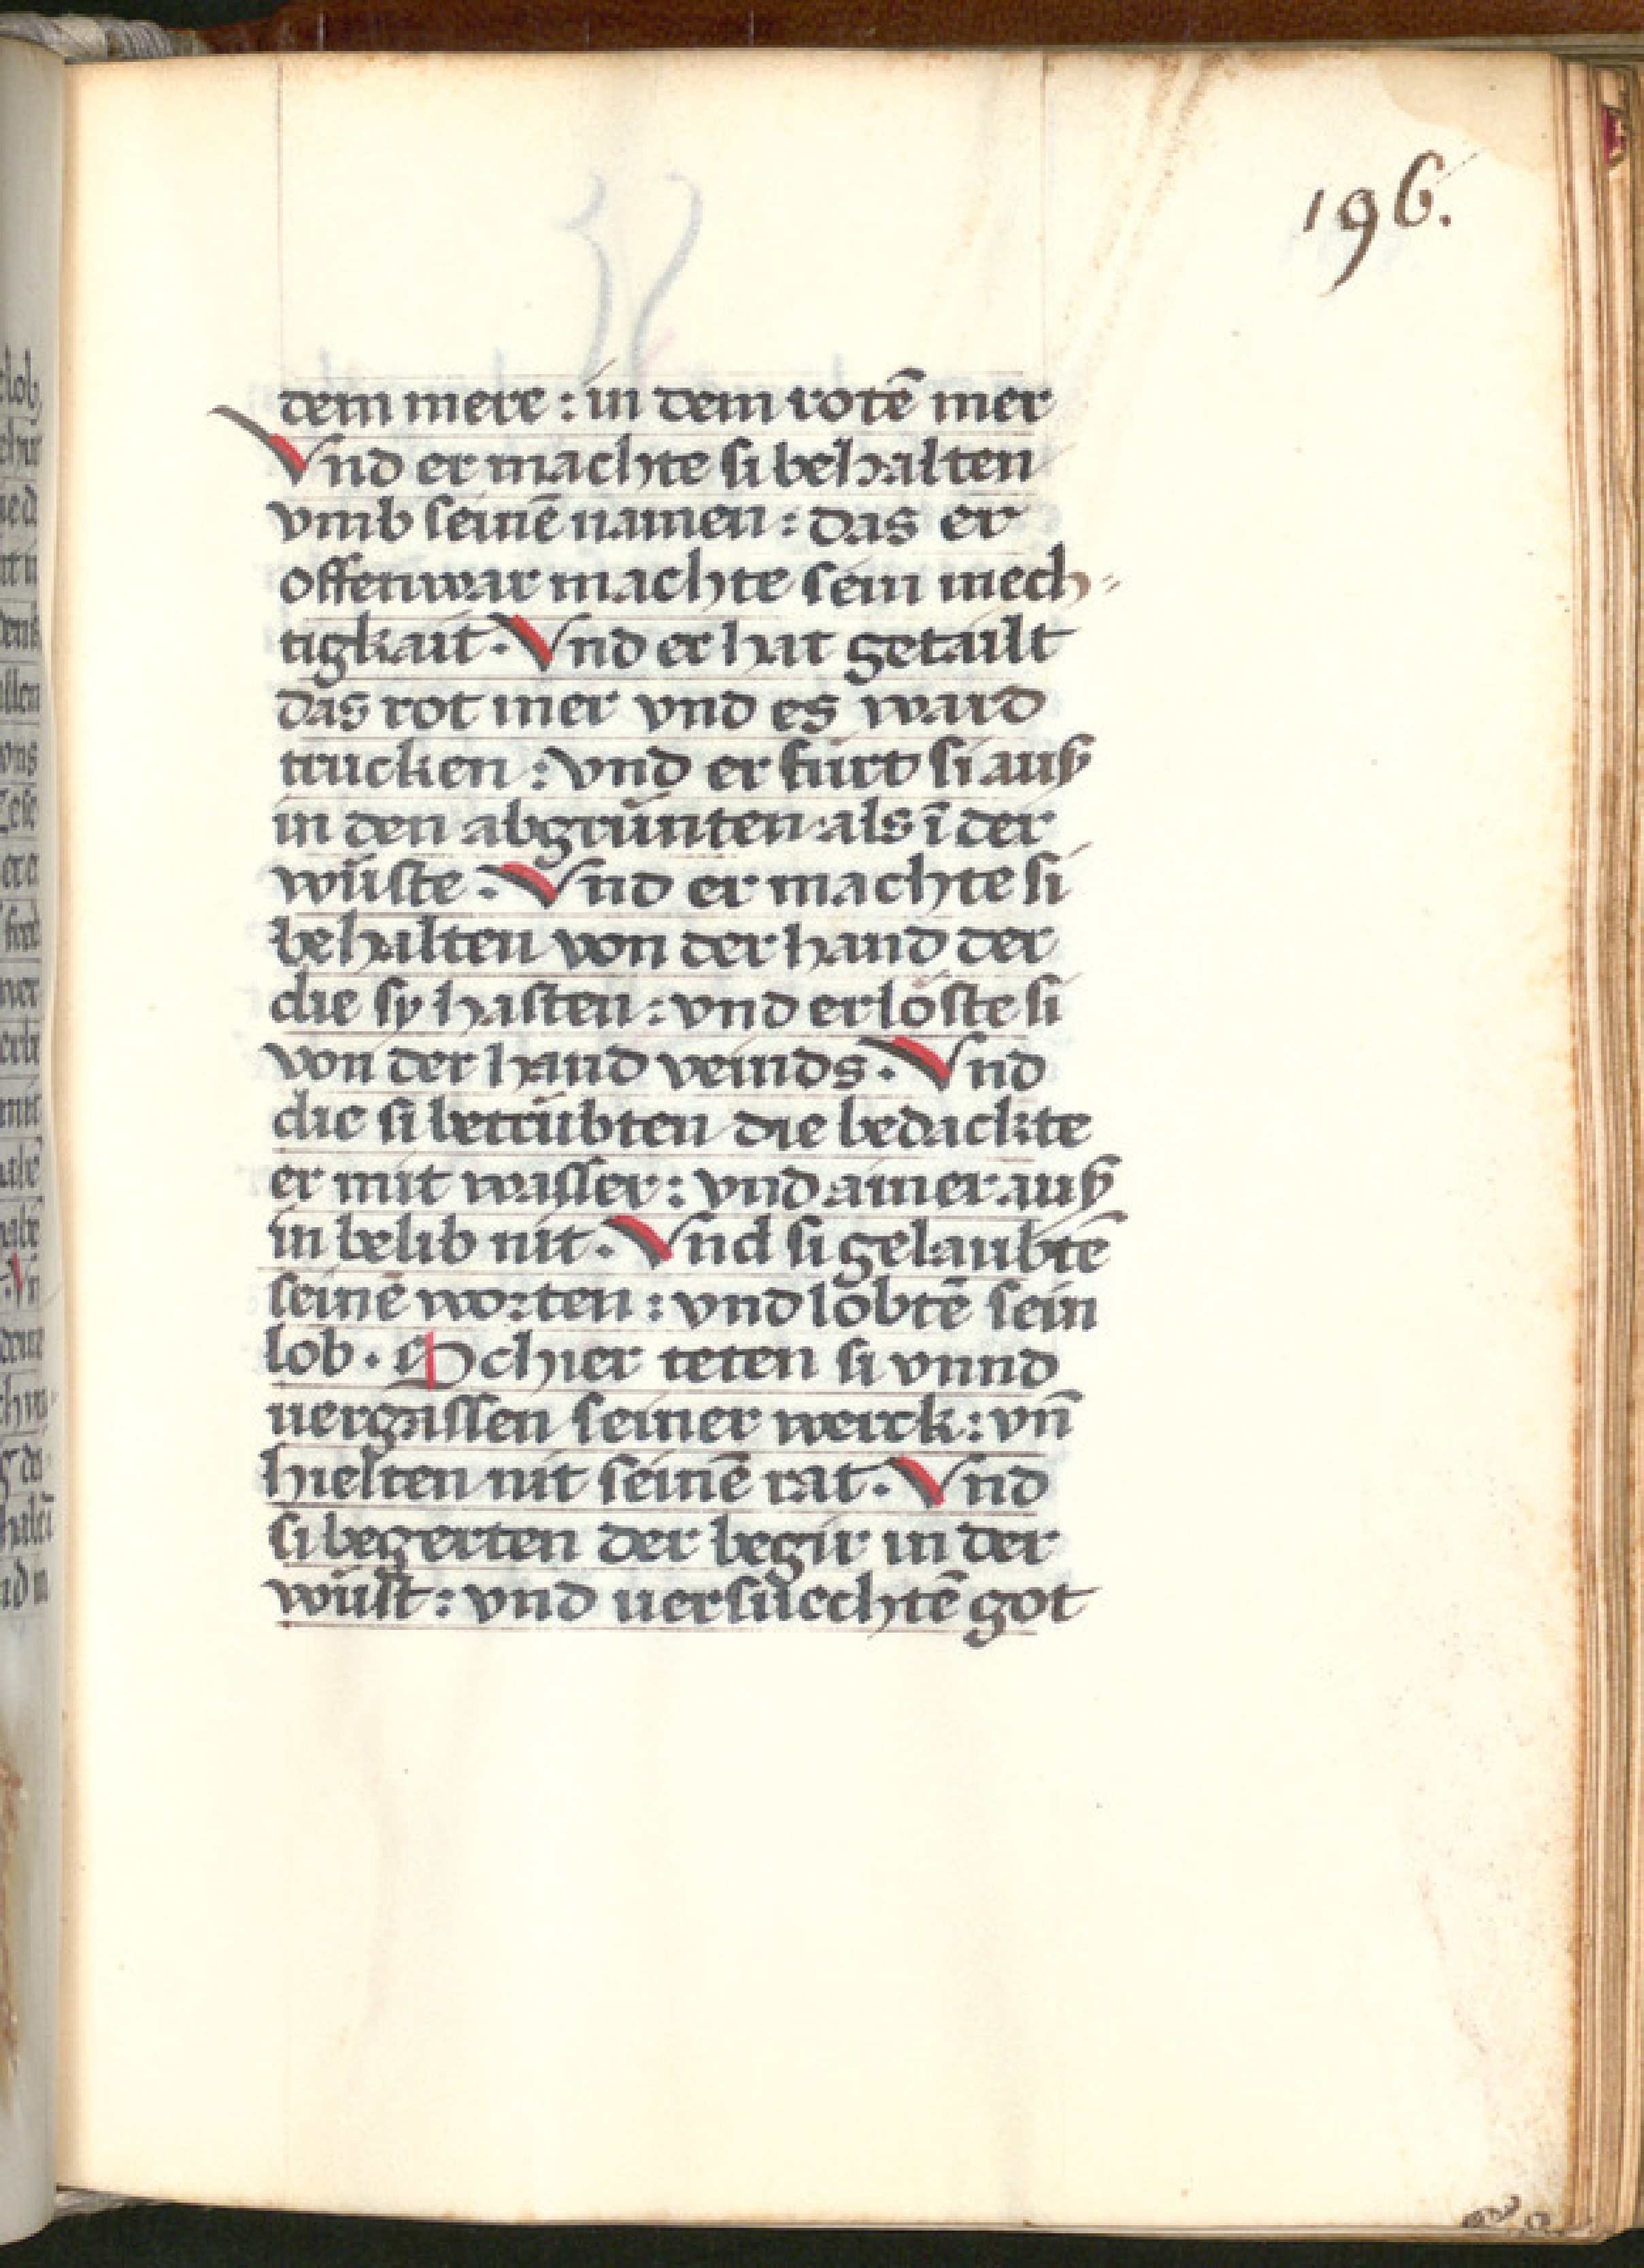 196.
dem mere : in dem rotē mer
Vnd er machte si behalten
vmb seinē namen : das er
offenwar machte sein mech⸗
tigkait · Vnd er hat getailt
das rot mer vnd es ward
trucken : vnd er fürt si auß
in den abgrünten als ī der
wüste · Vnd er machte si
behalten von der hand der
die sy hasten : vnd erlöste si
von der hand veinds · Vnd
die si betrübten die bedackte
er mit wasser : vnd ainer auß
in belib nit · Vnd si gelaubtē
seinē worten : vnd lobtē sein
lob · Schier teten si vnnd
uergassen seiner werck : vn̄
hielten nit seinē rat · Vnd
si begerten der begir in der
wüst : vnd uersuechtē got